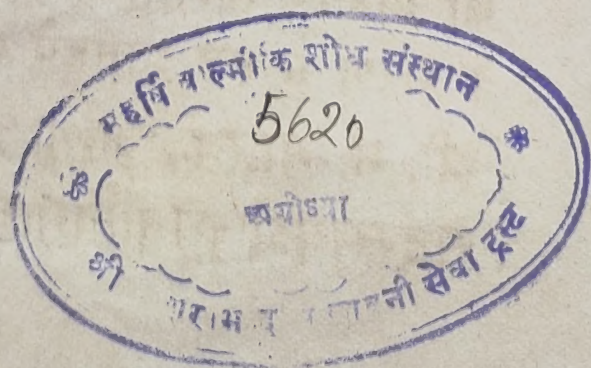 महर्षि वाल्मीकि शोध संस्थान
5620
अयोध्या
श्री
सेवा ट्रस्ट